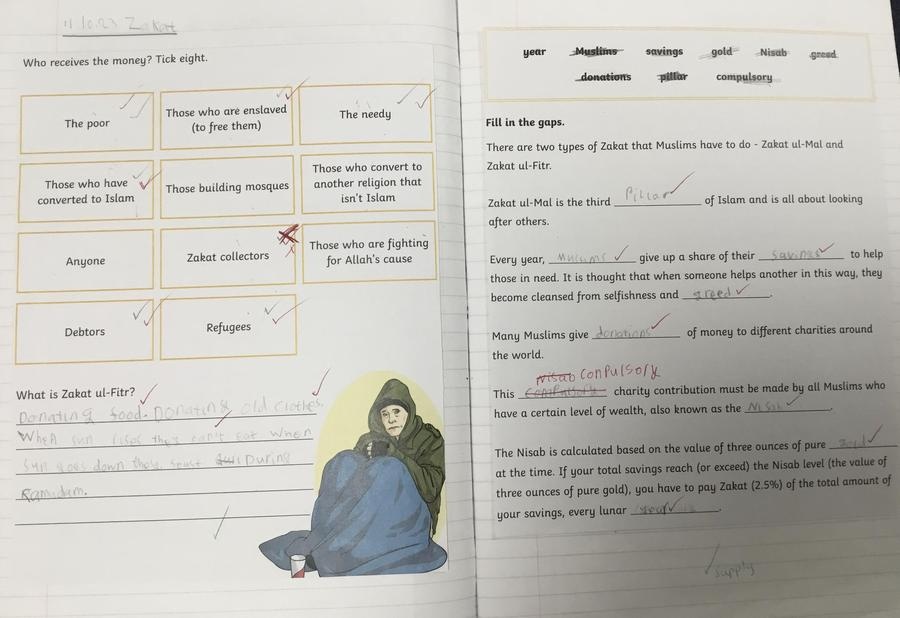 11.10.23 Zakat
Who receives the money? Tick eight.
The poor
Those who are enslaved
(to free them)
The needy
Those who have
converted to Islam
Those building mosques
Those who convert to
another religion that
isn't Islam
Anyone
Zakat collectors
Those who are fighting
for Allah's cause
Debtors
Refugees
What is Zakat ul-Fitr?
Donating food. Donating old clothes.
When sun rises they can't eat when
sun goes down they During
Ramidam.
year Muslims savings gold Nisab greed
donations pillar compulsory
Fill in the gaps.
There are two types of Zakat that Muslims have to do - Zakat ul-Mal and
Zakat ul-Fitr.
Zakat ul-Mal is the third Pillar of Islam and is all about looking
after others.
Every year, Muslims give up a share of their savings to help
those in need. It is thought that when someone helps another in this way, they
become cleansed from selfishness and greed.
Many Muslims give donations of money to different charities around
the world.
Nisab Conpulsory
This charity contribution must be made by all Muslims who
have a certain level of wealth, also known as the Nisab.
The Nisab is calculated based on the value of three ounces of pure gold
at the time. If your total savings reach (or exceed) the Nisab level (the value of
three ounces of pure gold), you have to pay Zakat (2.5%) of the total amount of
your savings, every lunar year.
supply